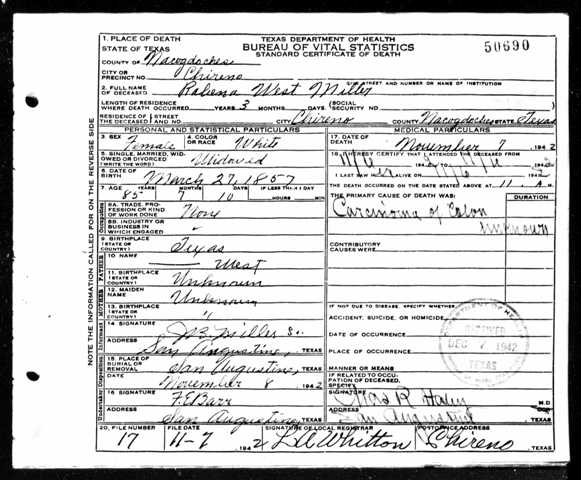 1. PLACE OF DEATH
STATE OF TEXAS
COUNTY OF Nacogdoches
CITY OR
PRECINCT NO. Chireno
TEXAS DEPARTMENT OF HEALTH
BUREAU OF VITAL STATISTICS
STANDARD CERTIFICATE OF DEATH
50690
GIVE STREET AND NUMBER OR NAME OF INSTITUTION
2. FULL NAME
OF DECEASED West Miller
LENGTH OF RESIDENCE
WHERE DEATH OCCURRED YEARS 3 MONTHS DAYS (SOCIAL
SECURITY NO.
RESIDENCE OF STREET
THE DECEASED AND NO. CITY Chireno COUNTY Nacogdoches STATE Texas
PERSONAL AND STATISTICAL PARTICULARS
3. SEX Female
4. COLOR
OR RACE White
5. SINGLE, MARRIED, WID-
OWED OR DIVORCED
(WRITE THE WORD) Widowed
6. DATE OF
BIRTH March 27, 1857
7. AGE YEARS MONTHS DAYS IF LESS THAN 1 DAY
85 7 10 HOURS MIN
8A. TRADE, PRO-
FESSION OR KIND
OF WORK DONE None
8B. INDUSTRY OR
BUSINESS IN
WHICH ENGAGED "
9. BIRTHPLACE
(STATE OR
COUNTRY) Texas
10. NAME West
11. BIRTHPLACE
(STATE OR
COUNTRY) Unknown
12. MAIDEN
NAME Unknown
13. BIRTHPLACE
(STATE OR
COUNTRY) "
14. SIGNATURE Miller
ADDRESS San Augustine, TEXAS
15. PLACE OF
BURIAL OR
REMOVAL San Augustine, TEXAS
DATE November 8 1942
16. SIGNATURE F E Barr
ADDRESS San Augustine TEXAS
MEDICAL PARTICULARS
17. DATE OF
DEATH November 7 1942
18. I HEREBY CERTIFY THAT I ATTENDED THE DECEASED FROM
I LAST SAW ALIVE ON
THE DEATH OCCURRED ON THE DATE STATED ABOVE AT 11 A M
THE PRIMARY CAUSE OF DEATH WAS: DURATION
Carcinoma of Colon
unknown
CONTRIBUTORY
CAUSES WERE:
IF NOT DUE TO DISEASE, SPECIFY WHETHER:
ACCIDENT, SUICIDE, OR HOMICIDE
DATE OF OCCURRENCE
PLACE OF OCCURRENCE
MANNER OR MEANS
IF RELATED TO OCCU-
PATION OF DECEASED,
SPECIFY
SIGNATURE M.D.
ADDRESS San Augustine TEXAS
RECEIVED
DEC 7 1942
TEXAS
20. FILE NUMBER FILE DATE SIGNATURE OF LOCAL REGISTRAR POSTOFFICE ADDRESS
17 11-7 1942 Whitton Chireno TEXAS
NOTE THE INFORMATION CALLED FOR ON THE REVERSE SIDE